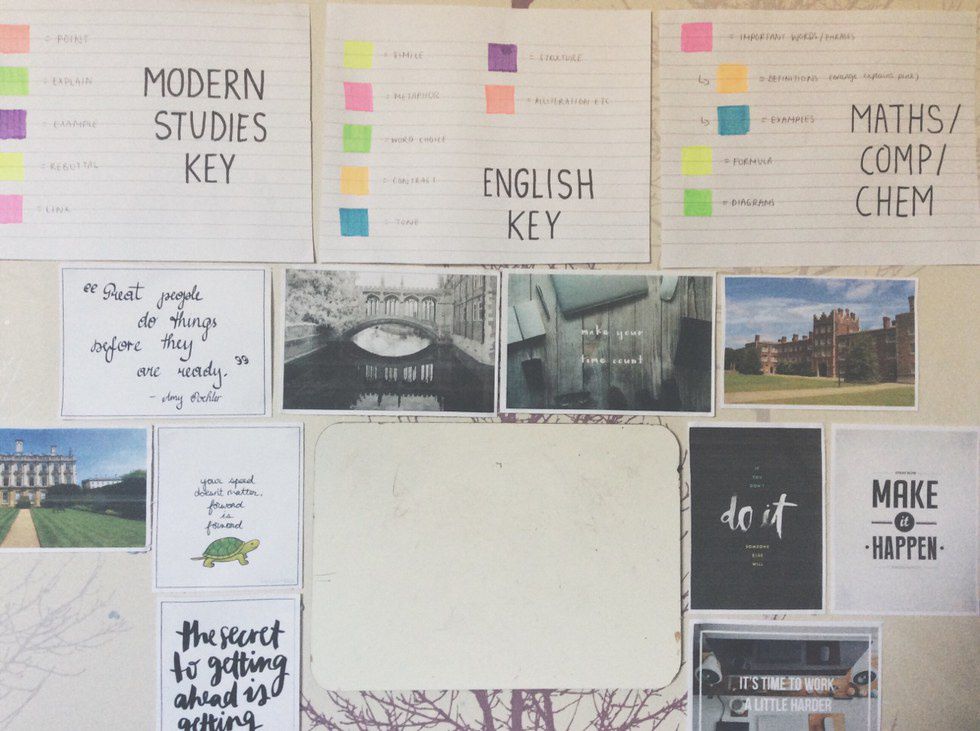 = POINT
= EXPLAIN
= EXAMPLE
= REBUTTAL
= LINK
MODERN
STUDIES
KEY
= SIMILE
= METAPHOR
= WORD CHOICE
= CONTRAST
= TONE
= STRUCTURE
= ALLITERATION ETC
ENGLISH
KEY
= IMPORTANT WORDS/PHRASES
↳ = DEFINITIONS (orange explains pink)
↳ = EXAMPLES
= FORMULA
= DIAGRAMS
MATHS/
COMP/
CHEM
“Great people
do things
before they
are ready.”
- Amy Poehler
make your
time count
your speed
doesn't matter,
forward
is
forward
IF
YOU
DON'T
do it
SOMEONE
ELSE
WILL
MAKE
it
HAPPEN
the secret
to getting
ahead is
getting
IT'S TIME TO WORK
A LITTLE HARDER